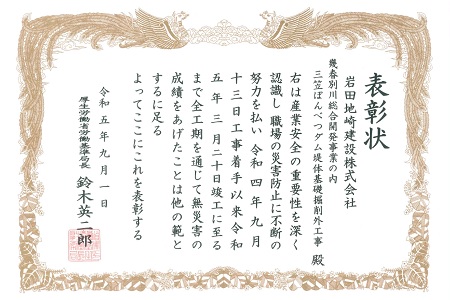 表彰状
岩田地崎建設株式会社
幾春別川総合開発事業の内
三笠ぽんべつダム堤体基礎掘削外工事 殿
右は産業安全の重要性を深く
認識し職場の災害防止に不断の
努力を払い令和四年九月
十三日工事着手以来令和
五年三月二十日竣工に至る
まで全工期を通じて無災害の
成績をあげたことは他の範と
するに足る
よってここにこれを表彰する
令和五年九月一日
厚生労働省労働基準局長 鈴木英二郎